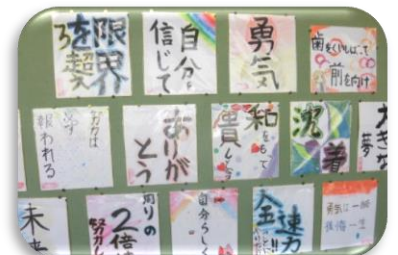 限界
を超えろ
自分を
信じて
勇気
歯をくいしばって
前を向け
必ず
報われる
ありが
とう
和をもて
貴しとす
沈着
大きな
夢
未来
周りの
2倍
努力し
自分らしく
全速力
!!
勇気は一瞬
後悔は一生